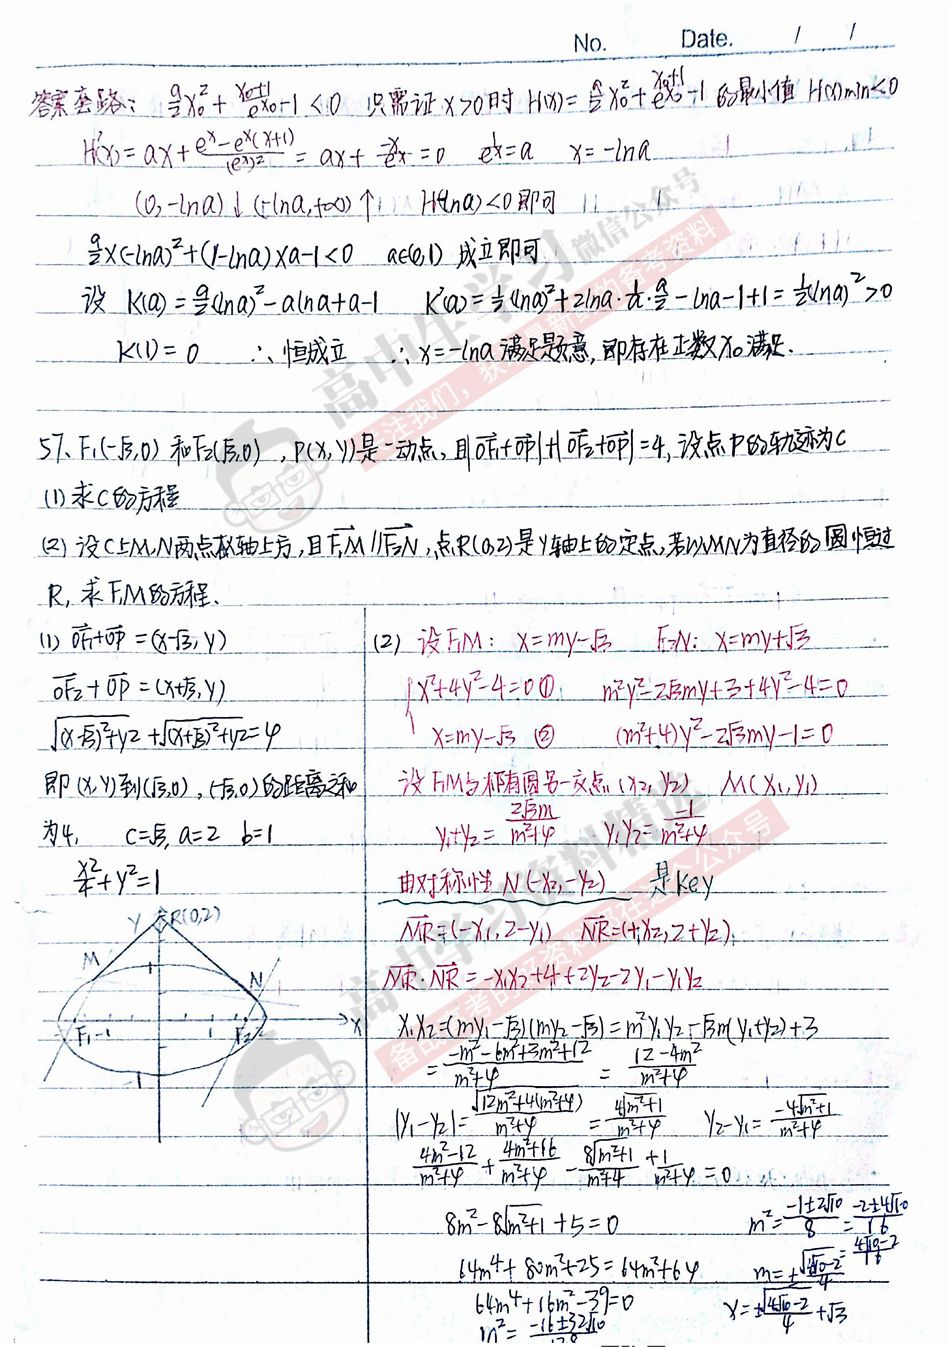 No. Date. / /
答案套路: a/2 x₀² + (x₀+1)/e^x₀ -1 < 0 只需证 x>0时 H(x)= a/2 x₀² + (x₀+1)/e^x₀ -1 的最小值 H(x)min<0
H'(x) = ax + (e^x - e^x(x+1))/(e^x)² = ax + -x/e^x = 0 1/e^x = a x = -lna
(0,-lna)↓ (-lna,+∞)↑ H(-lna)<0即可
a/2 x(-lna)² + (1-lna)xa-1<0 a∈(0,1) 成立即可
设 K(a) = a/2(lna)² - alna+a-1 K'(a) = 1/2(lna)² + 2lna·1/a·a/2 - lna-1+1 = 1/2(lna)² >0
K(1) = 0 ∴恒成立 ∴ x=-lna 满足题意,即存在正数x₀满足.
57、F₁(-√3,0) 和F₂(√3,0) , P(x,y)是一动点,且|OF₁+OP|+|OF₂+OP|=4,设点P的轨迹为C
(1) 求C的方程
(2) 设C上M,N两点在x轴上方,且F₁M//F₂N,点R(0,2)是y轴上的定点,若以MN为直径的圆恒过
R, 求F₁M的方程.
(1) OF₁+OP = (x-√3, y)
OF₂+OP = (x+√3, y)
√((x-√3)²+y²) + √((x+√3)²+y²) = 4
即(x,y)到(√3,0) , (-√3,0)的距离之和
为4, c=√3, a=2 b=1
x²/4 + y² = 1
y R(0,2)
M N
1
F₁ -1 1 F₂ x
-1
(2) 设F₁M: x=my-√3 F₂N: x=my+√3
x²+4y²-4=0 ① m²y²-2√3my+3+4y²-4=0
x=my-√3 ② (m²+4)y²-2√3my-1=0
设F₁M与椭圆另一交点(x₂,y₂) M(x₁,y₁)
y₁+y₂ = 2√3m/(m²+4) y₁y₂ = -1/(m²+4)
由对称性 N(-x₂,-y₂) 是key
MR=(-x₁,2-y₁) NR=(+x₂,2+y₂)
MR·NR = -x₁x₂+4+2y₂-2y₁-y₁y₂
x₁x₂=(my₁-√3)(my₂-√3) = m²y₁y₂-√3m(y₁+y₂)+3
= (-m²-6m²+3m²+12)/(m²+4) = (12-4m²)/(m²+4)
|y₁-y₂| = √(12m²+4(m²+4))/(m²+4) = 4√(m²+1)/(m²+4) y₂-y₁ = -4√(m²+1)/(m²+4)
(4m²-12)/(m²+4) + (4m²+16)/(m²+4) - 8√(m²+1)/(m²+4) + 1/(m²+4) = 0
8m²-8√(m²+1)+5=0 m² = (-1±2√10)/8 = (-2±4√10)/16
64m⁴+80m²+25=64m²+64 = (4√10-2)/16
m=±√(4√10-2)/4
64m⁴+16m²-39=0 x=±√(4√10-2)/4 +√3
m² = (-16±32√10)/128
高中生学习 微信公众号
关注我们,获取最新的备考资料
高中学习资料精选
备战高考的学习资料都在这公众号